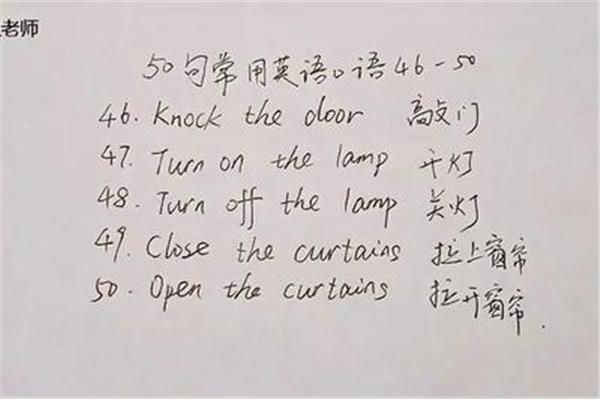 老师
50句常用英语口语46-50
46. Knock the door 敲门
47. Turn on the lamp 开灯
48. Turn off the lamp 关灯
49. Close the curtains 拉上窗帘
50. Open the curtains 拉开窗帘.